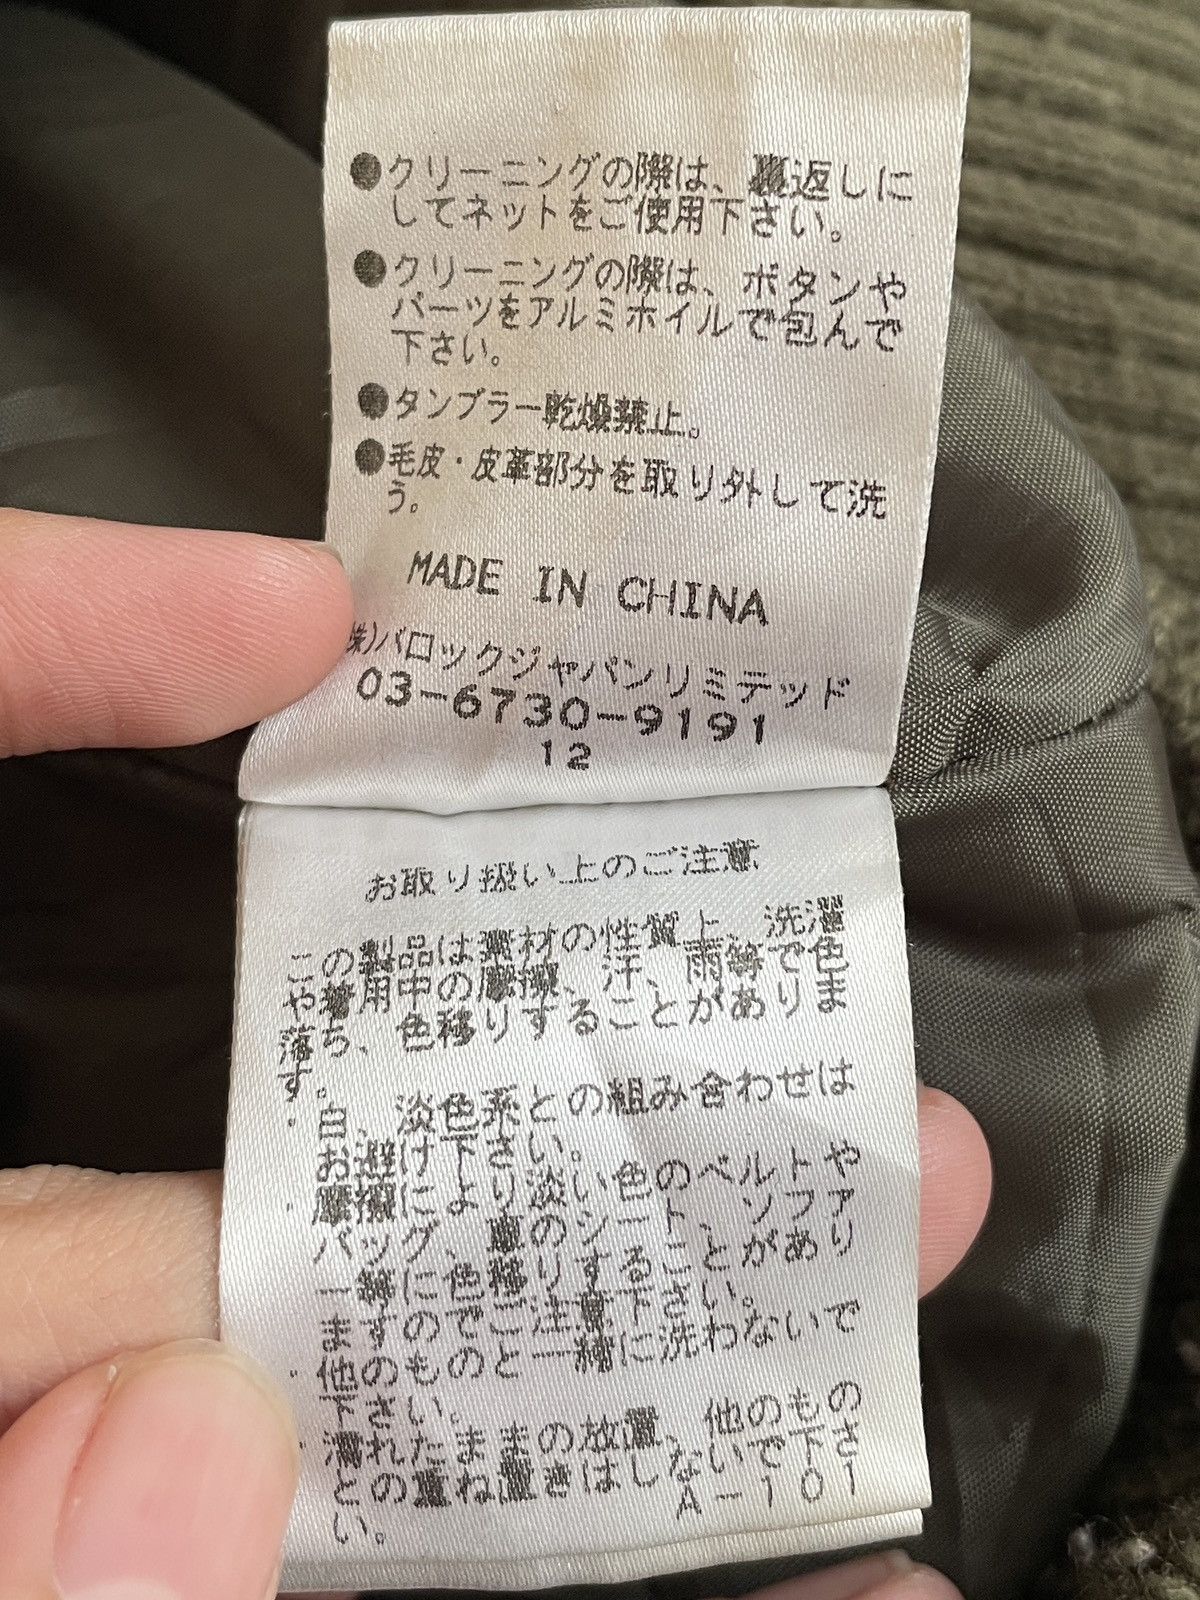 ●クリーニングの際は、裏返しに
してネットをご使用下さい。
●クリーニングの際は、ボタンや
パーツをアルミホイルで包んで
下さい。
●タンブラー乾燥禁止。
●毛皮・皮革部分を取り外して洗
う。
MADE IN CHINA
株)バロックジャパンリミテッド
03-6730-9191
12
お取り扱い上のご注意
この製品は素材の性質上、洗濯
や着用中の摩擦、汗、雨等で色
落ち、色移りすることがありま
す。
・白、淡色系との組み合わせは
お避け下さい。
・摩擦により淡い色のベルトや
バッグ、車のシート、ソファ
ー等に色移りすることがあり
ますのでご注意下さい。
・他のものと一緒に洗わないで
下さい。
・濡れたままの放置、他のもの
との重ね置きはしないで下さ
い。
A-101